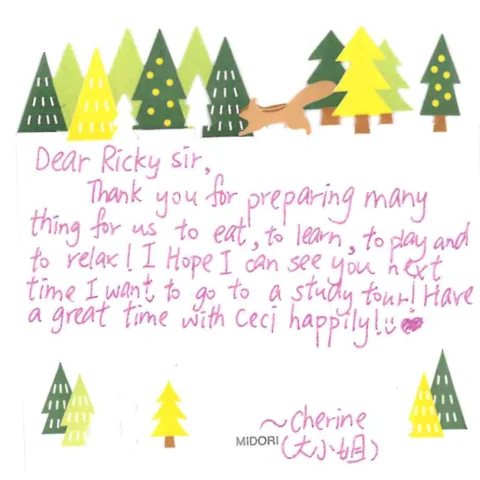 Dear Ricky sir,
Thank you for preparing many
thing for us to eat, to learn, to play and
to relax! I Hope I can see you next
time I want to go to a study tour! Have
a great time with Ceci happily!
~Cherine
MIDORI (大小姐)